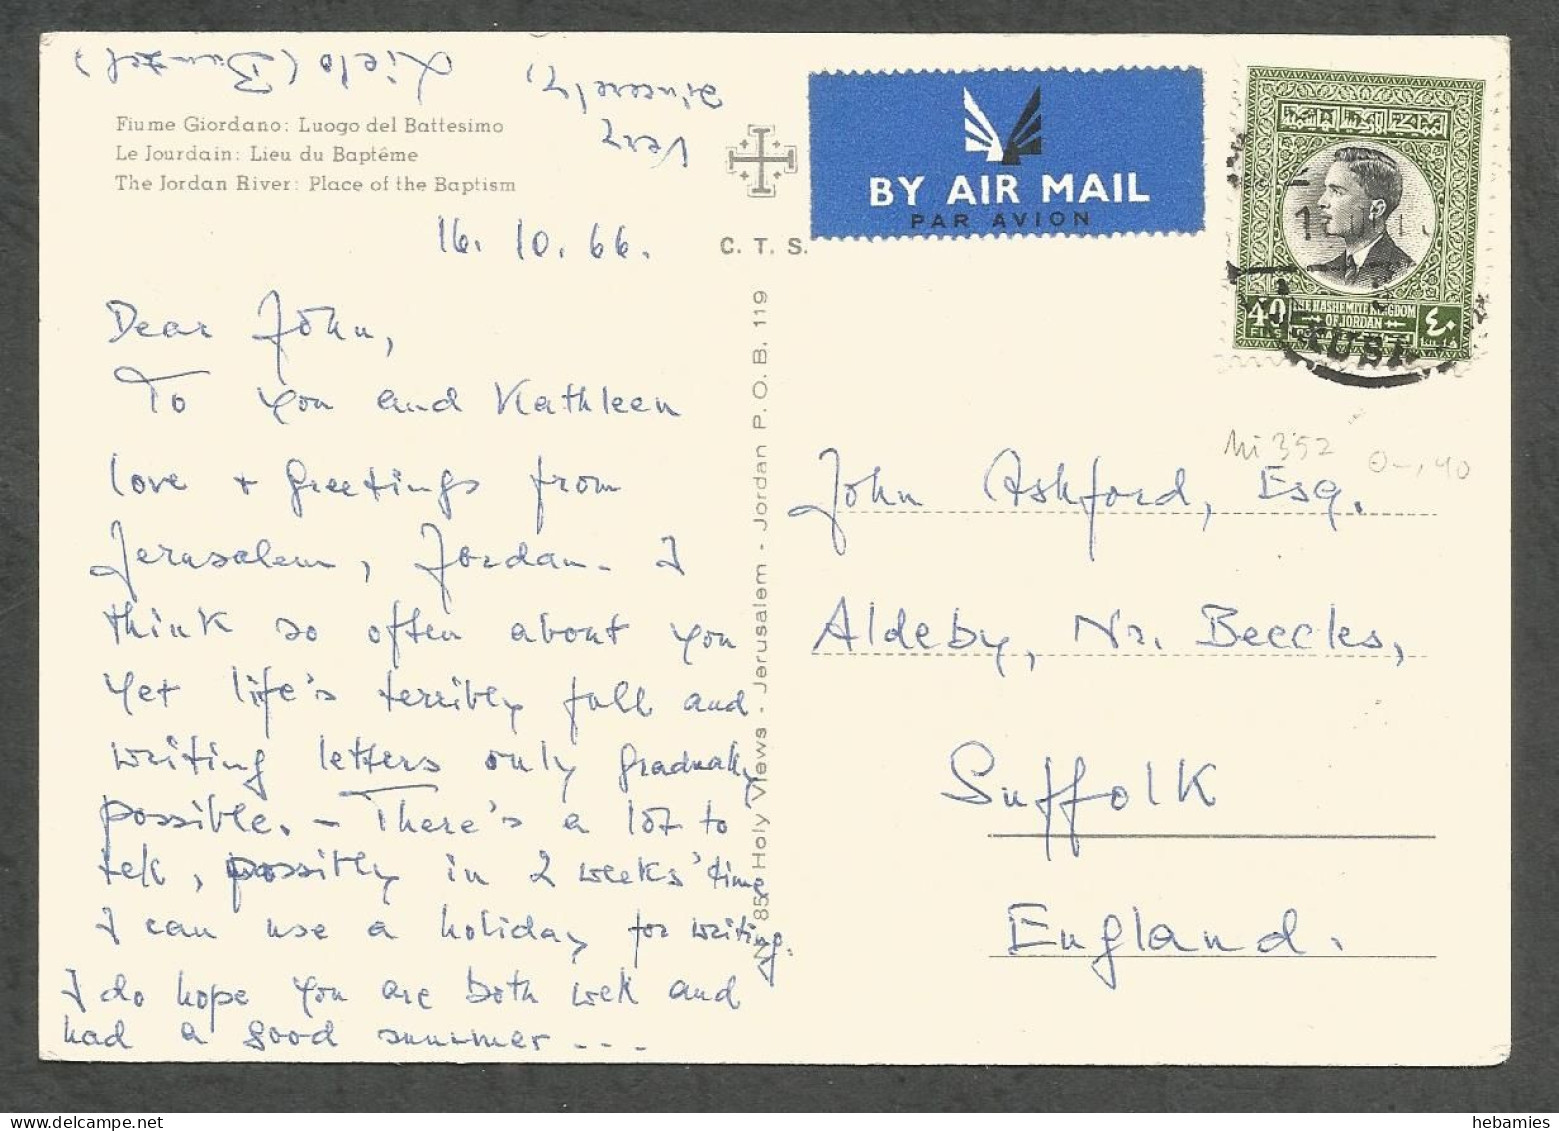 Fiume Giordano: Luogo del Battesimo
Le Jourdain: Lieu du Baptême
The Jordan River: Place of the Baptism
16. 10. 66.
Dear John,
To you and Kathleen
love + greetings from
Jerusalem, Jordan. I
think so often about you
yet life's terribly full and
writing letters only gradually
possible. – There's a lot to
tell, possibly in 2 weeks' time
I can use a holiday for writing.
I do hope you are both well and
had a good summer ...
Very
sincerely,
C. T. S.
Holy Views - Jerusalem - Jordan P. O. B. 119
BY AIR MAIL
PAR AVION
المملكة الأردنية الهاشمية
THE HASHEMITE KINGDOM
OF JORDAN
40
FILS
٤٠
فلسا
Mi 352
John Ashford, Esq.
Aldeby, Nr. Beccles,
Suffolk
England.
hebamies